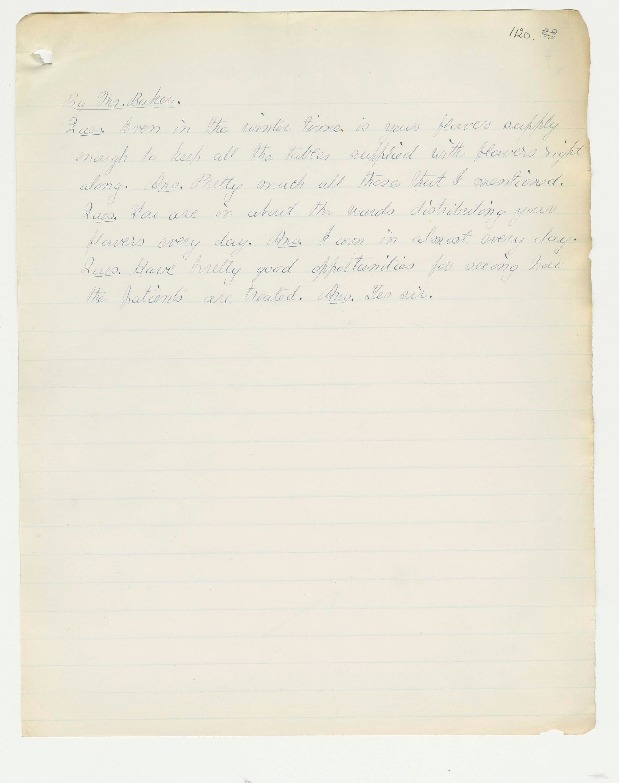 1120. 22
By Mr. Baker.
Ques. Even in the winter time is your flower supply
enough to keep all the tables supplied with flowers right
along. Ans. Pretty much all those that I mentioned.
Ques. You are in about the wards distributing your
flowers every day. Ans. I am in almost every day.
Ques. Have pretty good opportunities for seeing how
the patients are treated. Ans. Yes sir.